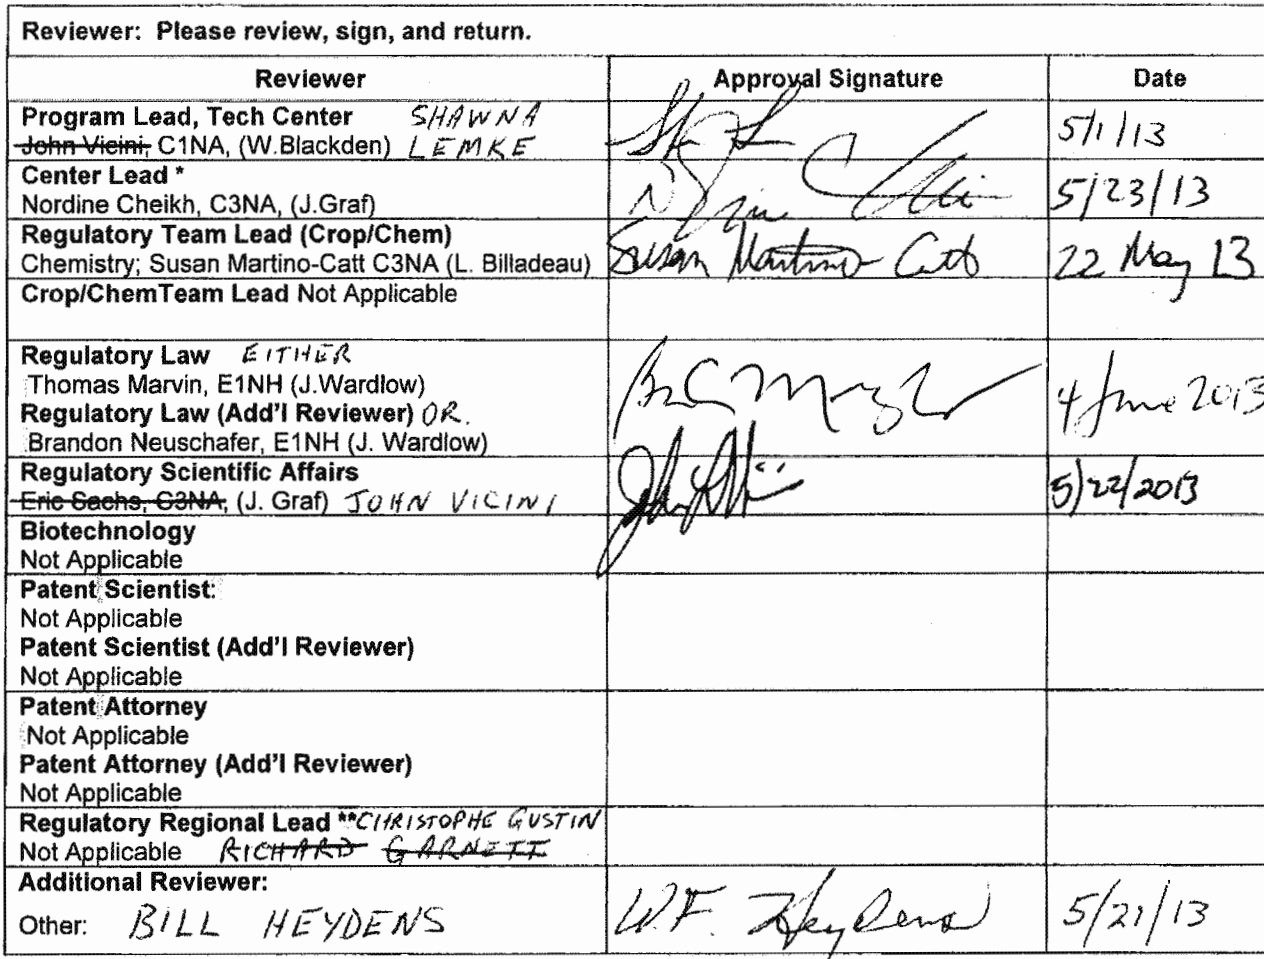 Reviewer: Please review, sign, and return.
Reviewer Approval Signature Date
Program Lead, Tech Center SHAWNA
John Vicini, C1NA, (W.Blackden) LEMKE 5/1/13
Center Lead *
Nordine Cheikh, C3NA, (J.Graf) 5/23/13
Regulatory Team Lead (Crop/Chem)
Chemistry; Susan Martino-Catt C3NA (L. Billadeau) Susan Martino-Catt 22 May 13
Crop/ChemTeam Lead Not Applicable
Regulatory Law EITHER
Thomas Marvin, E1NH (J.Wardlow)
Regulatory Law (Add'l Reviewer) OR. 4 June 2013
Brandon Neuschafer, E1NH (J. Wardlow)
Regulatory Scientific Affairs
Eric Sachs, C3NA, (J. Graf) JOHN VICINI 5/22/2013
Biotechnology
Not Applicable
Patent Scientist:
Not Applicable
Patent Scientist (Add'l Reviewer)
Not Applicable
Patent Attorney
Not Applicable
Patent Attorney (Add'l Reviewer)
Not Applicable
Regulatory Regional Lead **CHRISTOPHE GUSTIN
Not Applicable RICHARD GARNETT
Additional Reviewer:
Other: BILL HEYDENS W.F. Heydens 5/21/13